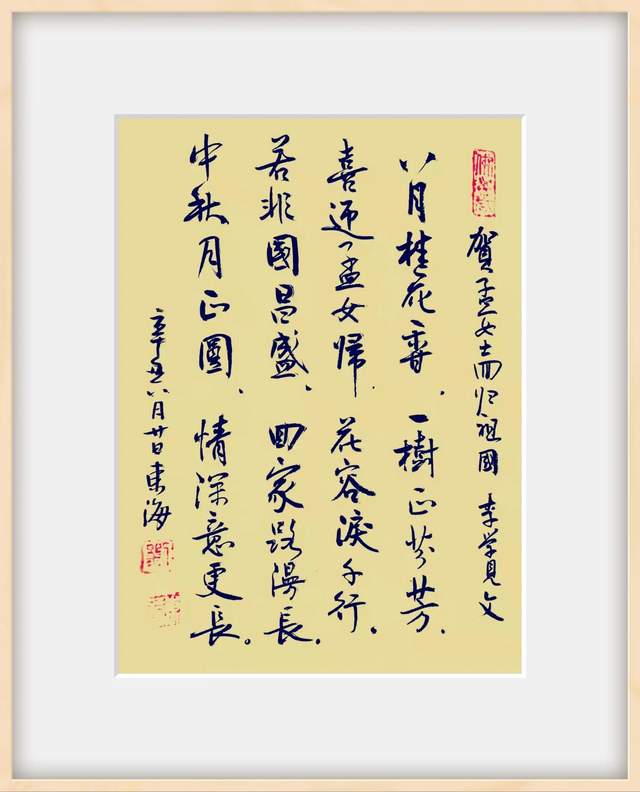 賀孟女士回归祖國 李学見文
八月桂花香、一樹正芬芳、
喜迎孟女歸、花容淚千行、
若非國昌盛、回家路漫長、
中秋月正圓、情深意更長。
辛丑八月廿日東海